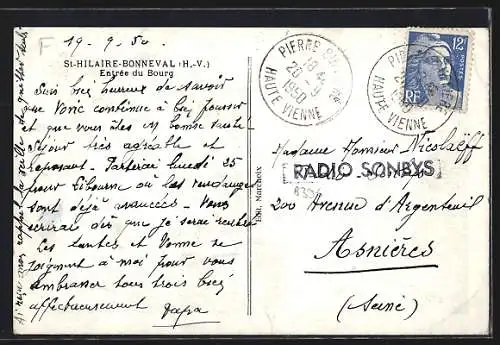 F
19-9-50.
St-HILAIRE-BONNEVAL (H.-V.)
Entrée du Bourg
Suis bien heureux de savoir
que continue à bien pousser
et que vous êtes bonne santé
Séjour très agréable et
reposant. Partirai lundi 25
pour Libourne où les vendanges
sont déjà avancées - Vous
écrirai dès que je serai rentré
Les tantes et se
joignent à moi pour vous
embrasser tous trois bien
affectueusement papa
PIERRE
18 4
20 - 9
1950
HAUTE VIENNE
12F
POSTES
RF
PIERRE
HAUTE VIENNE
Madame Monsieur Nicolaëff
RADIO SONBYS
200 Avenue d'Argenteuil
Asnières
(Seine)